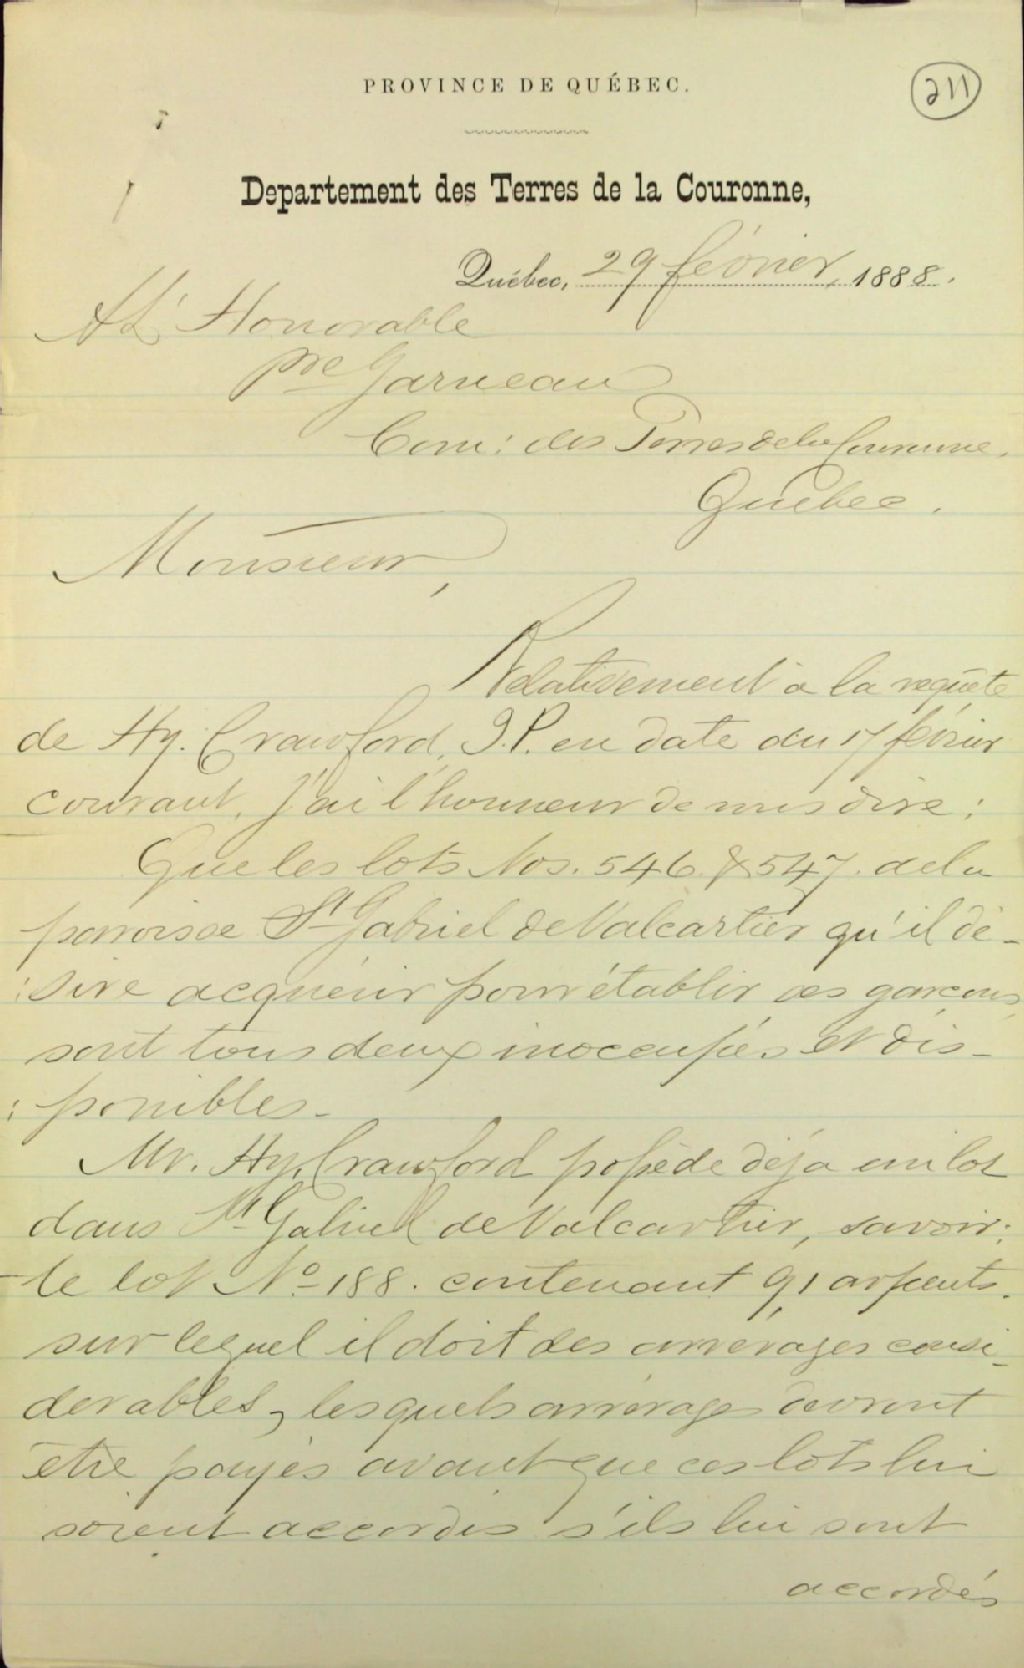 PROVINCE DE QUÉBEC.
211
Departement des Terres de la Couronne,
Québec, 29 février, 1888.
A L'Honorable
Pre Garneau
Com: des Terres de la Couronne,
Québec.
Monsieur,
Relativement à la requête
de Hy. Crawford, J.P. en date du 17 février
courant. J'ai l'honneur de vous dire:
Que les lots Nos. 546 & 547. de la
paroisse St Gabriel de Valcartier qu'il dé-
:sire acquérir pour établir ses garçons,
sont tous deux inoccupés et dis-
:ponibles-
Mr. Hy. Crawford possède déja un lot
dans St Gabriel de Valcartier, savoir:
le lot No 188. contenant 91 arpents.
sur lequel il doit des arrérages consi-
derables, lesquels arrérages devront
être payés avant que ces lots lui
soient accordés s'ils lui sont
accordés